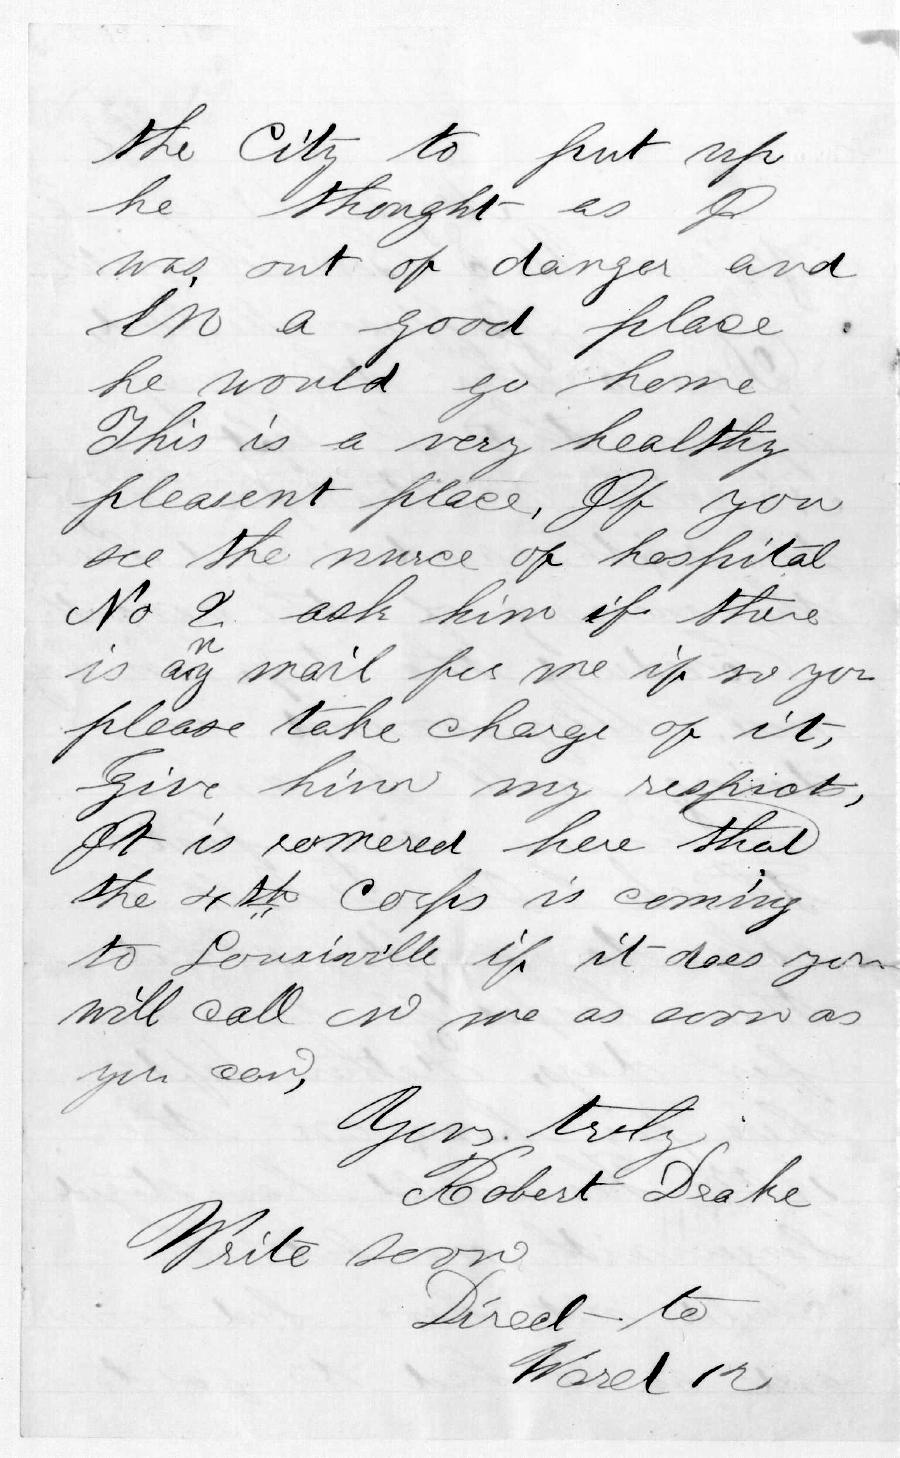 the City to put up
he thought as I
was out of danger and
in a good place
he would go home
This is a very healthy
pleasent place, If you
see the nurce of hospital
No 2 ask him if there
is any mail for me if so you
please take charge of it,
Give him my respicts,
It is romered here that
the 4th Corps is coming
to Lousiville if it does you
will call on me as soon as
you can,
Yours truly
Robert Drake
Write soon
Direct to
Ward 12